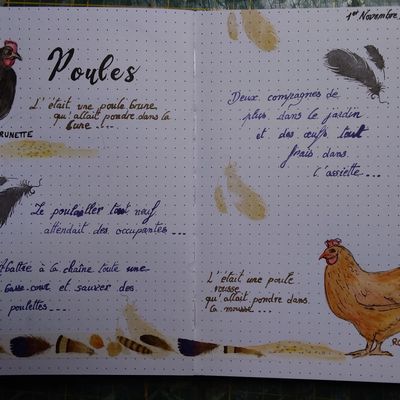 Poules
L'était une poule brune
qu'allait pondre dans la
lune ....
BRUNETTE
Le poulailler tout neuf
attendait des occupantes ...
Abattre à la chaîne toute une
basse-cour et sauver des
poulettes ....
1er Novembre
Deux compagnes de
plus dans le jardin
et des œufs tout
frais dans
l'assiette ....
L'était une poule
rousse
qu'allait pondre dans
la mousse ....